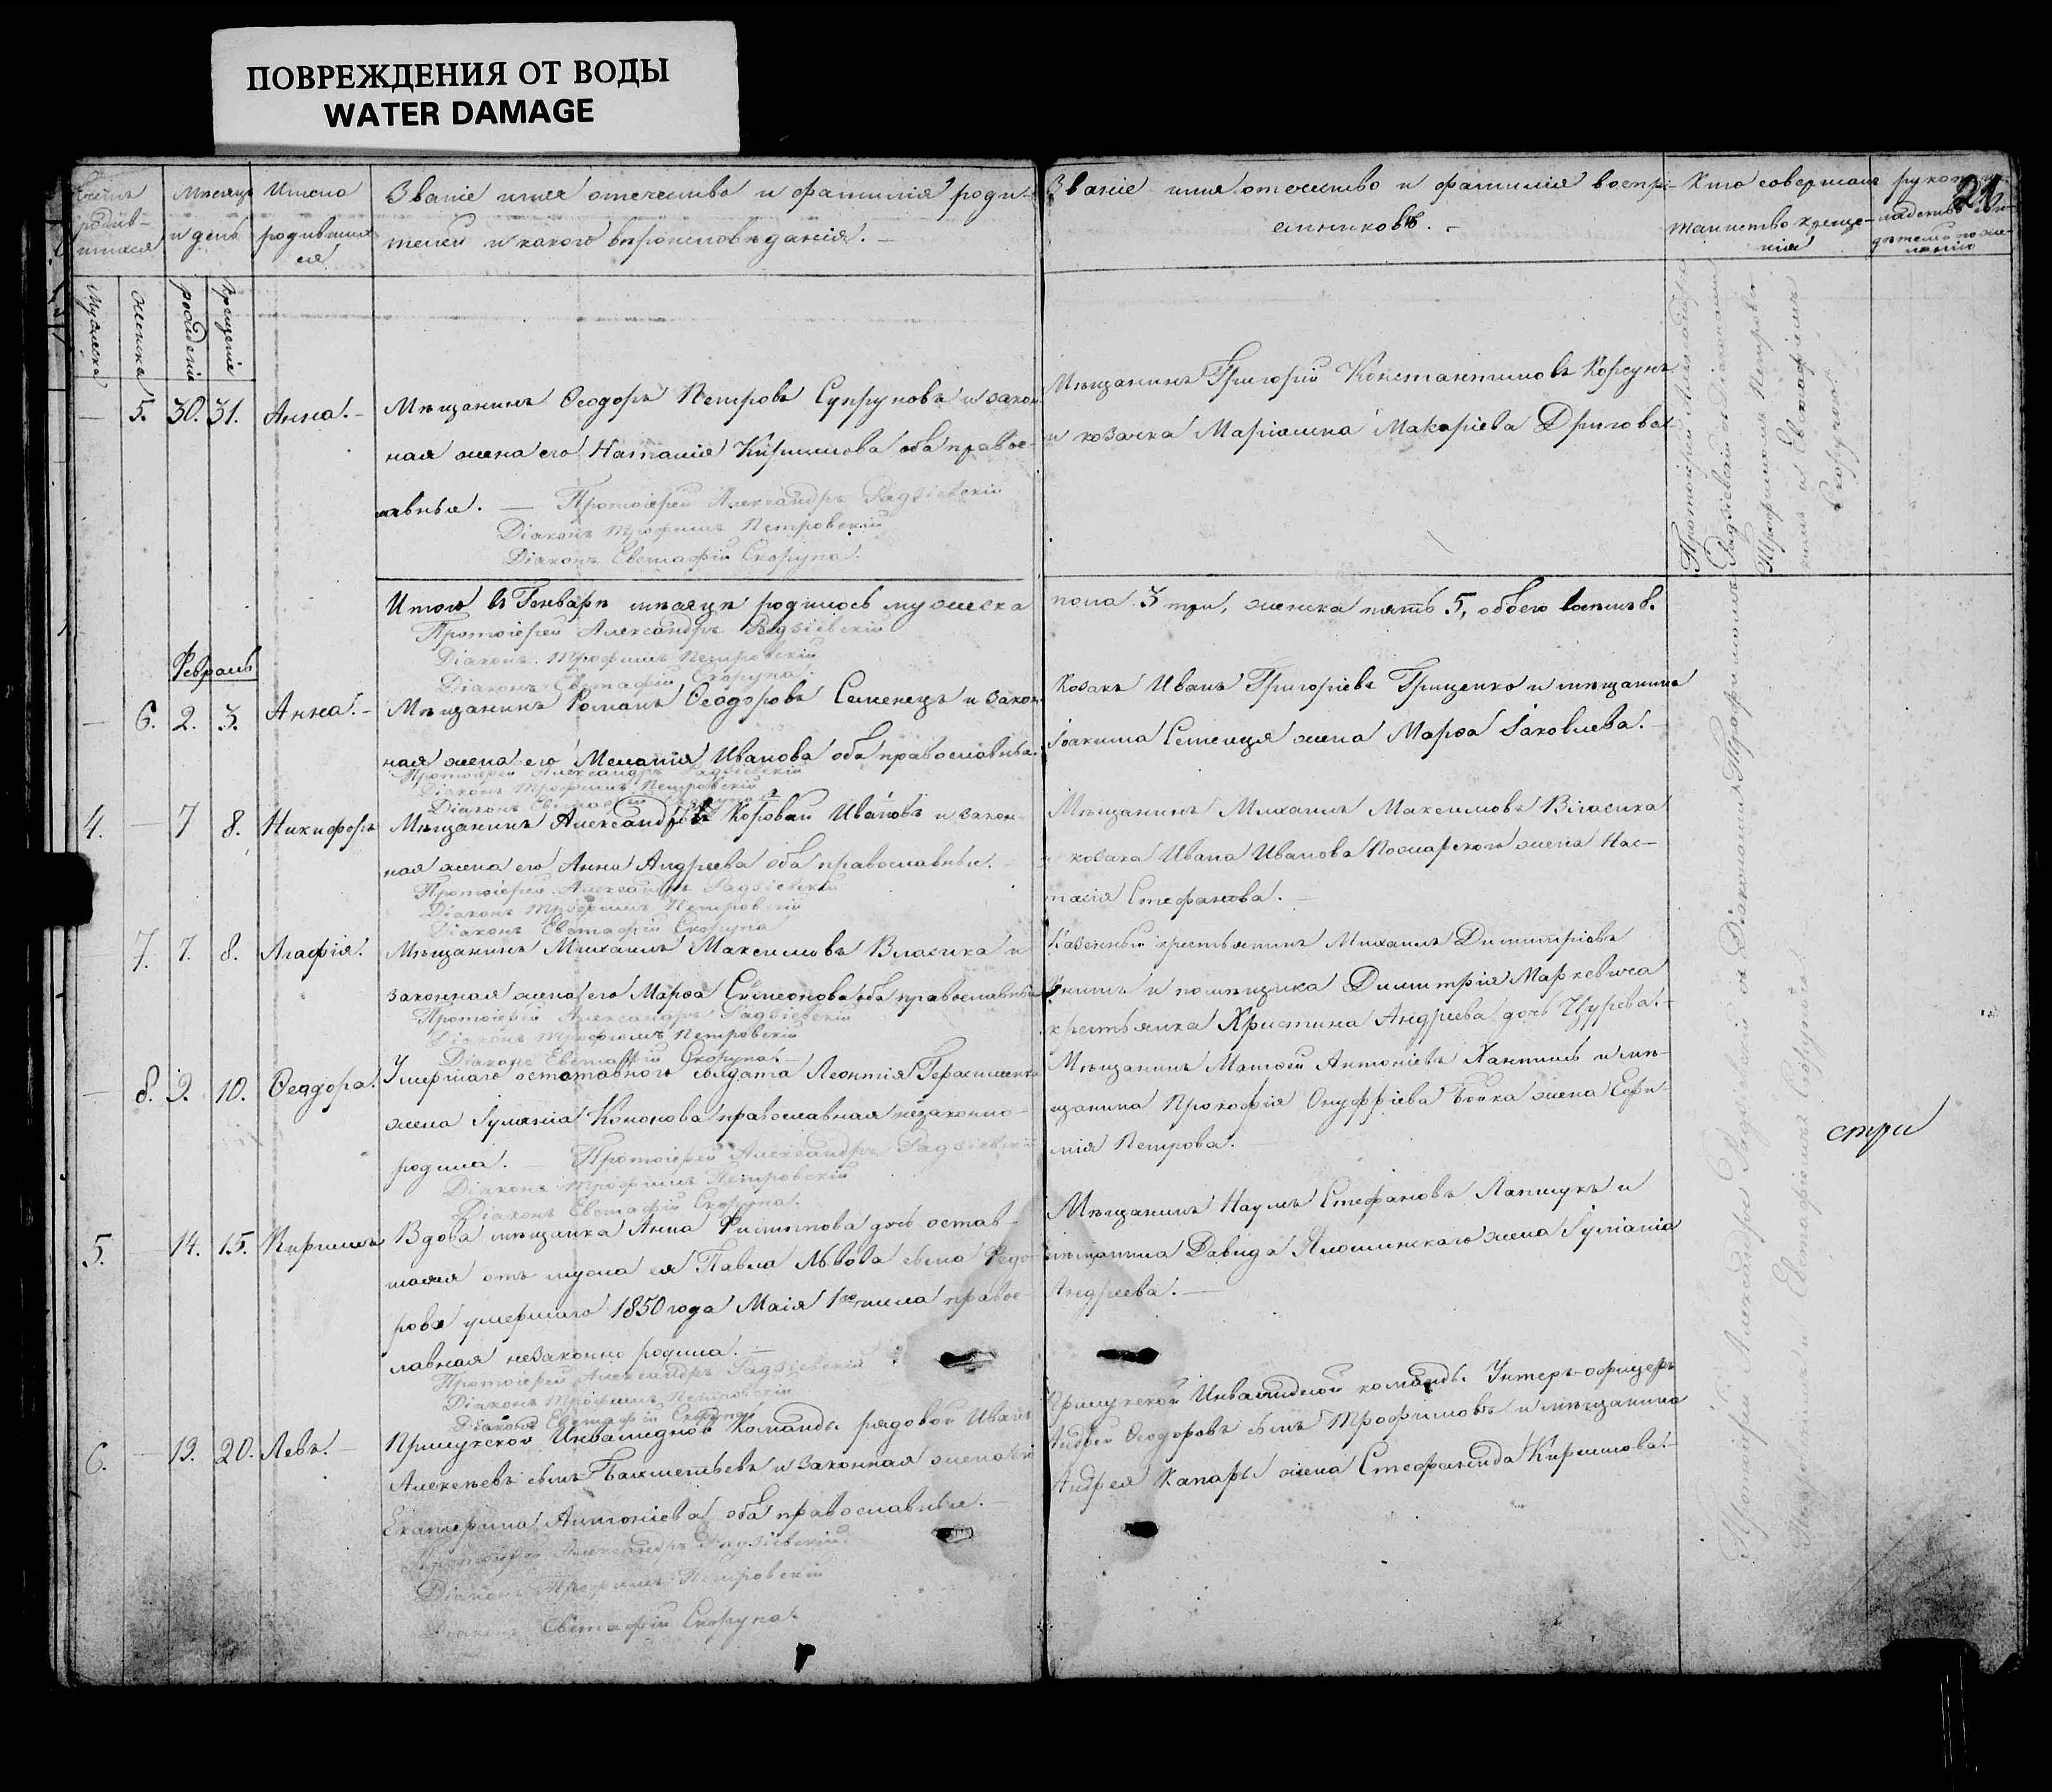 ПОВРЕЖДЕНИЯ ОТ ВОДЫ
WATER DAMAGE
21.
Счетъ родив-шихся
Мѣсяцъ и день
Имена родившихся
Званіе имя отечество и фамилія роди-
телей и какого вѣроисповѣданія. –
Званіе имя отечество и фамилія воспрі-
емниковъ. –
Кто совершалъ
таинство креще-
нія
Мужеска
Женска
рожденія
крещенія
— 5. 30. 31. Анна. –
Мѣщанинъ Ѳеодоръ Петровъ Супруновъ и закон-
ная жена его Наталія Кириллова оба правос-
лавные. — Протоіерей Александръ Гадзіевскій
Діаконъ Трофимъ Петровскій
Діаконъ Евстафій Скорупа.
Мѣщанинъ Григорій Константиновъ Корсунъ
и козачка Маріамна Макаріева Дригова
Итого въ Генварѣ мѣсяцѣ родилось мужеска
пола 3 три, женска пять 5, обоего восемь 8.
Протоіерей Александръ Гадзіевскій
Діаконъ Трофимъ Петровскій
Діаконъ Евстафій Скорупа.
Февраль
— 6. 2. 3. Анна. –
Мѣщанинъ Романъ Ѳеодоровъ Семенецъ и закон-
ная жена его Меланія Иванова оба православные.
Протоіерей Александръ Гадзіевскій
Діаконъ Трофимъ Петровскій
Діаконъ Евстафій Скорупа
Козакъ Иванъ Григоріевъ Грищенко и мѣщанина
Іоакима Семенця жена Марѳа Іаковлева. –
4. — 7 8. Никифоръ
Мѣщанинъ Александръ Коровай Ивановъ и закон-
ная жена его Анна Андреева оба православные.
Протоіерей Александръ Гадзіевскій
Діаконъ Трофимъ Петровскій
Діаконъ Евстафій Скорупа
Мѣщанинъ Михаилъ Максимовъ Власика
и козака Ивана Иванова Пожарского жена Нас-
тасія Стефанова. –
— 7. 7. 8. Агафія.
Мѣщанинъ Михаилъ Максимовъ Власика и
законная жена его Марѳа Симеонова оба православные
Протоіерей Александръ Гадзіевскій
Діаконъ Трофимъ Петровскій
Діаконъ Евстафій Скорупа. –
Казенный крестьянинъ Михаилъ Димитріевъ
и помѣщика Димитрія Маркевича
крестьянка Христина Андреева дочь Цурева. –
— 8. 9. 10. Ѳеодора.
Умершаго отставного солдата Леонтія Герасименка
жена Іуліанія Кононова православная незаконно
родила. — Протоіерей Александръ Гадзіевскій
Діаконъ Трофимъ Петровскій
Діаконъ Евстафій Скорупа.
Мѣщанинъ Матѳей Антоніевъ и мѣ-
щанина Прокофія Онуфріева Бойка жена Ефи-
мія Петрова. –
стри
5. 14. 15. Кириллъ
Вдова мѣщанка Анна Филиппова дочь остав-
шаяся отъ мужа ея Павла Львова сына Федо-
рова умершаго 1850 года Маія 1го числа правос-
лавная незаконно родила. –
Протоіерей Александръ Гадзіевскій
Діаконъ Трофимъ Петровскій
Діаконъ Евстафій Скорупа
Мѣщанинъ Наумъ Стефановъ Лапшукъ и
мѣщанина Давида жена Іуліанія
Андреева. —
6. — 19. 20. Левъ. –
Прилукской Инвалидной команды рядовой Иванъ
Алексѣевъ сынъ Бакшетьевъ и законная жена его
Екатерина Антоніева оба православные. –
Протоіерей Александръ Гадзіевскій.
Діаконъ Трофимъ Петровскій
Діаконъ Евстафій Скорупа.
Прилукской Инвалидной команды Унтеръ-офицеръ
Андрей Ѳеодоровъ сынъ Трофимовъ и мѣщанина
Андрея Капары жена Стефанида Кириллова. –
Протоіерей Александръ
Гадзіевскій съ Діаконами
Трофимомъ Петровс-
кимъ и Евстафіемъ
Скорупою.
Протоіерей Александръ Гадзіевскій съ Діаконами Трофимомъ
Петровскимъ и Евстафіемъ Скорупою.